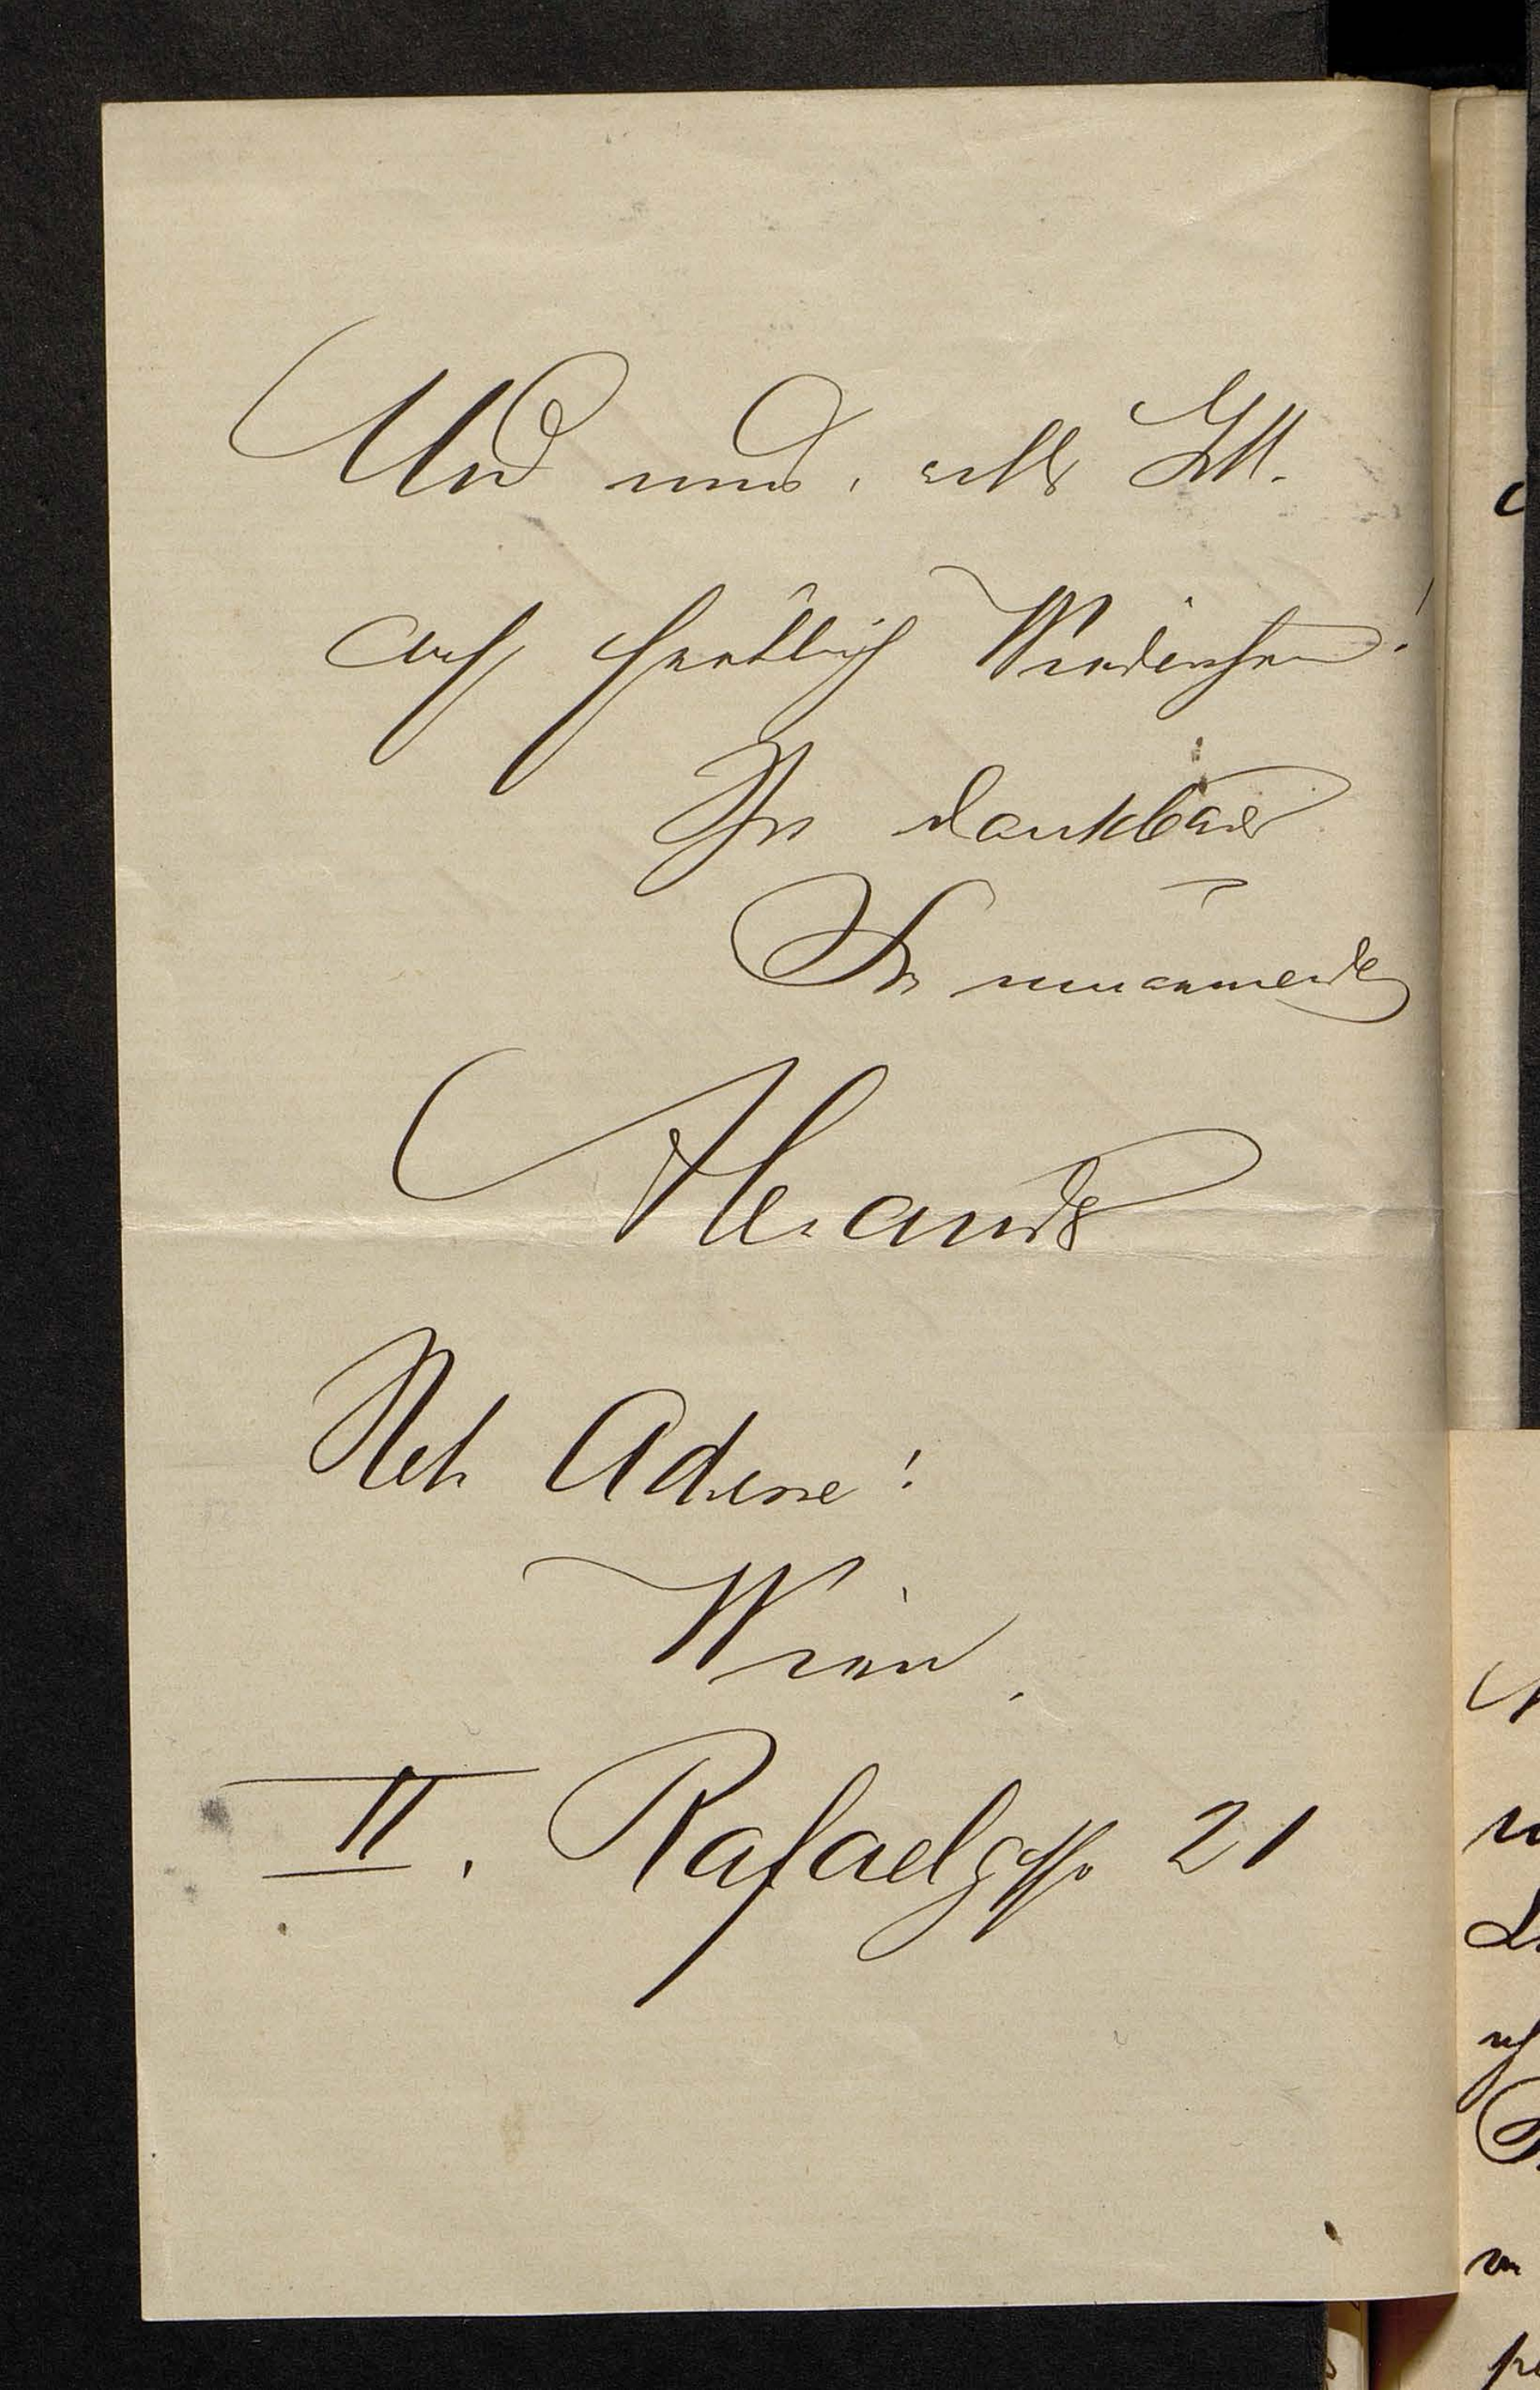 Und nun, will's Gott.
auf fröhlich Wiedersehen!
Ihr dankbar
Sie umarmender
Alexander
Neb. Adresse!
Wien.
II. Rafaelgasse 21